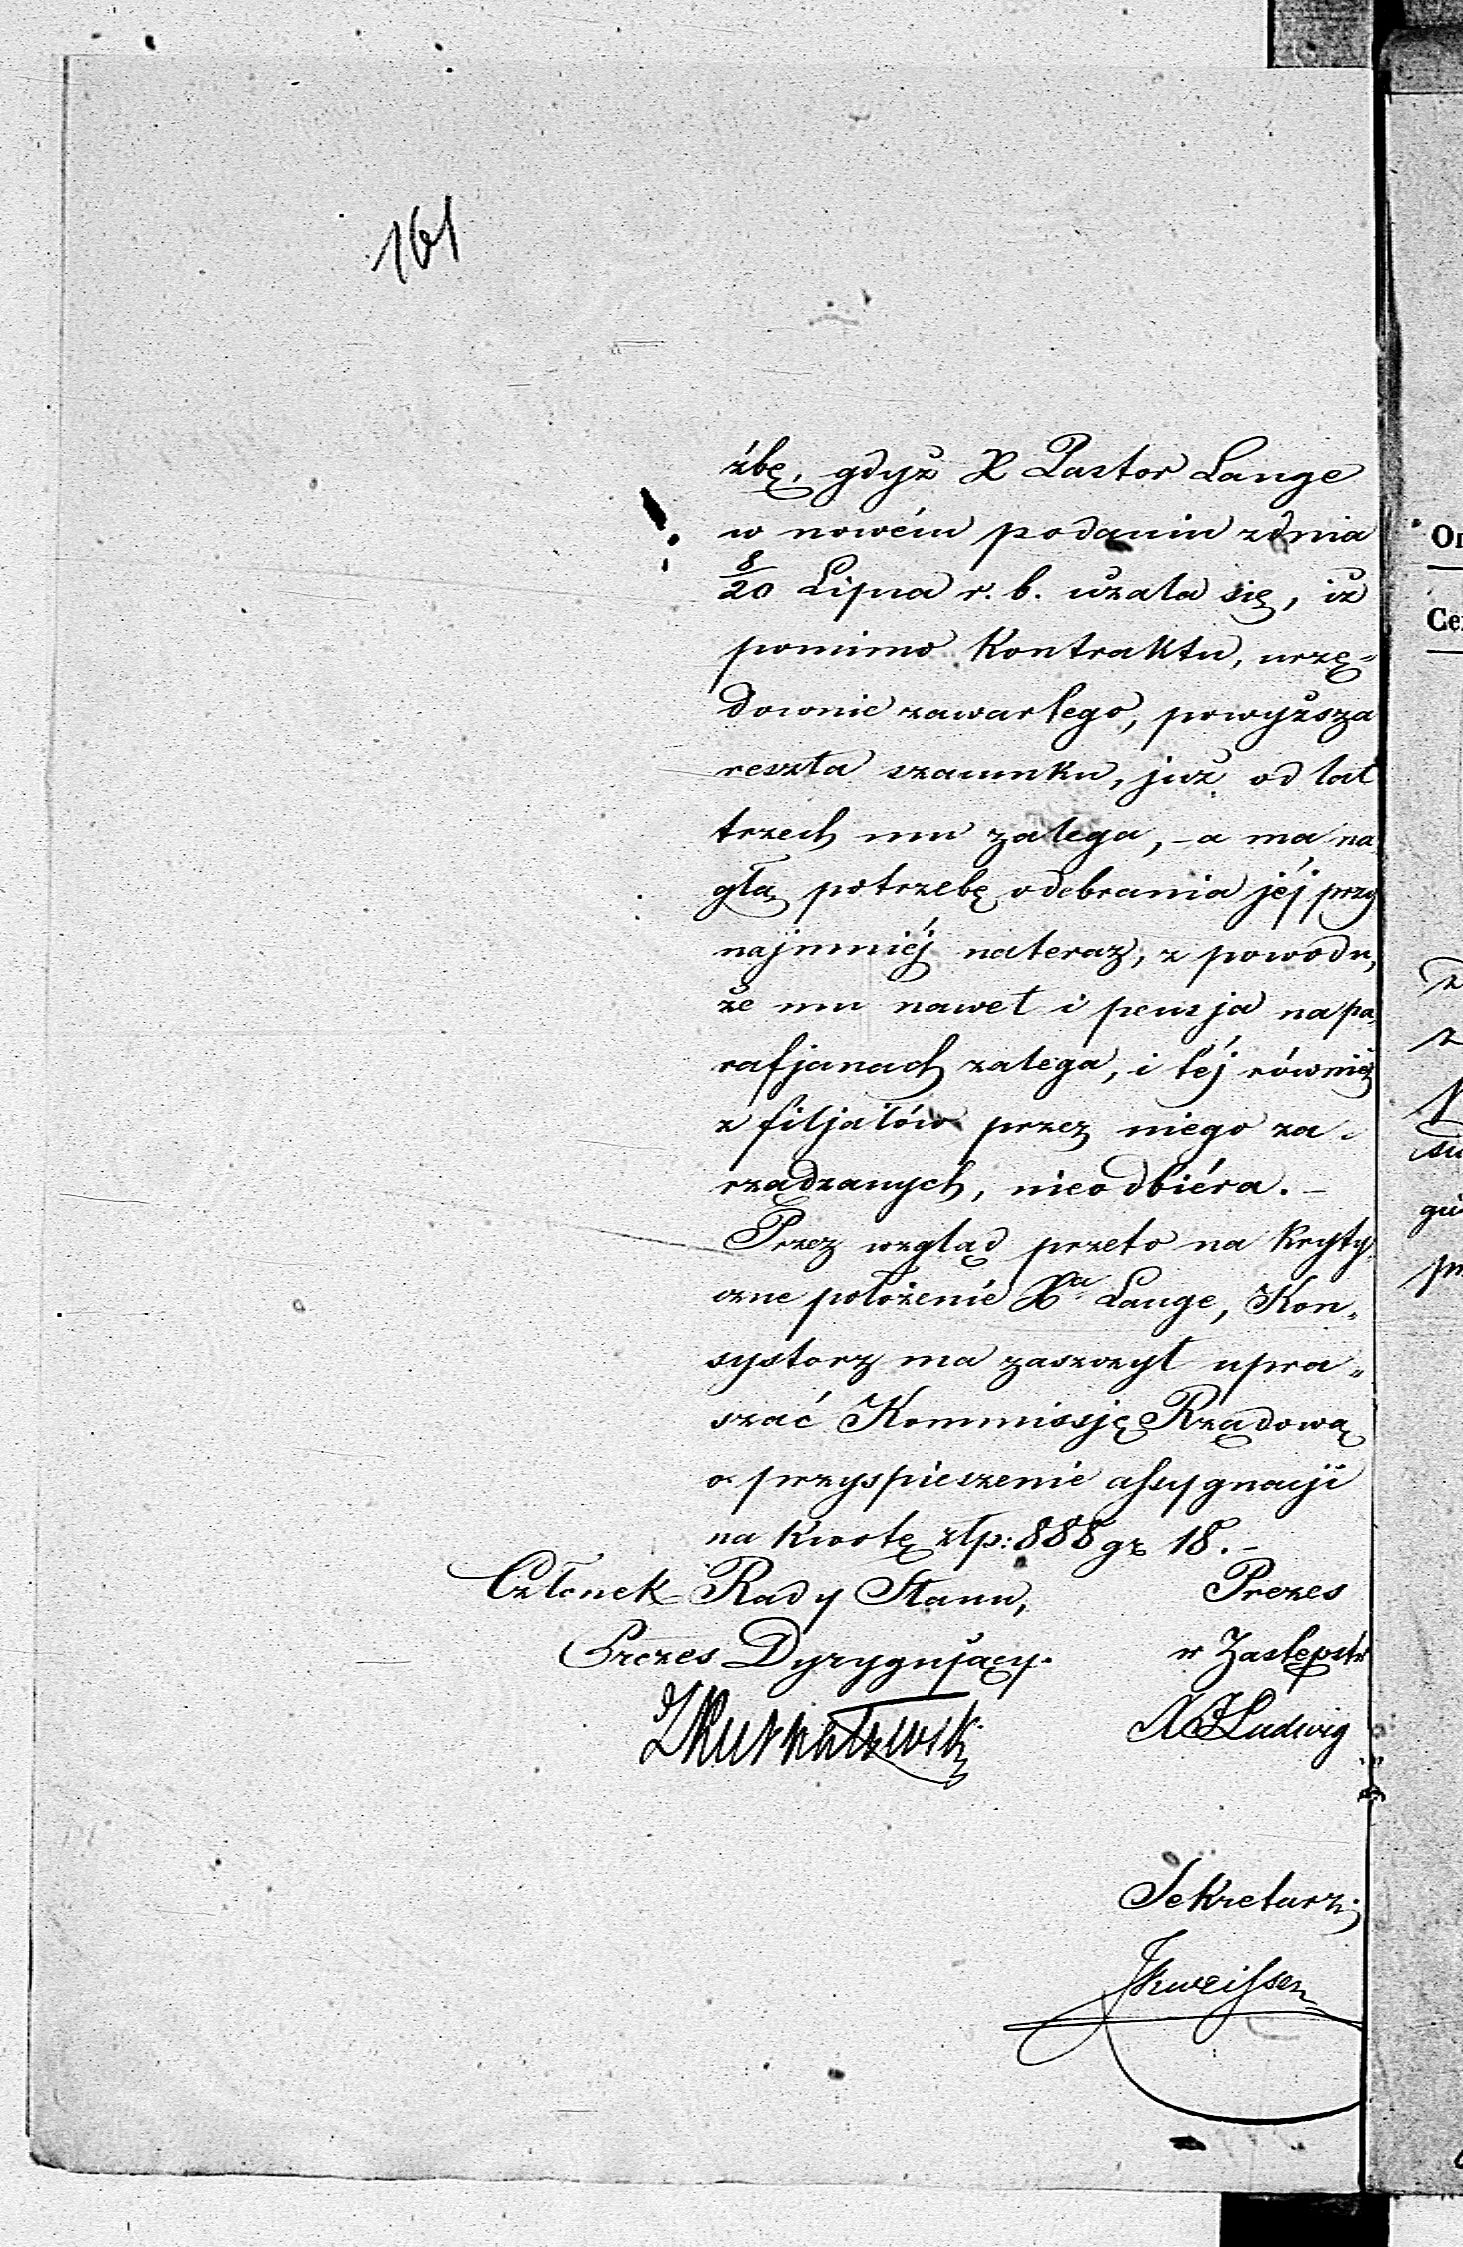 161
źbę, gdyż X Pastor Lange
w nowém podaniu zdnia
8/20 Lipna r. b. użala się, iż
pomimo Kontraktu, urzę„
downie zawartego, powyższa
reszta szacunku, już od lat
trzech mu zalega, – a ma na
głą potrzebę odebrania jéj przy
najmniéj nateraz, z powodu,
że mu nawet i pensja na pa„
rafjanach zalega, i téj również
z filjałów przez niego za„
rządzanych, nieodbiéra. –
Przez wzgląd przeto na kryty„
czne położenie Xa Lange, Kon„
systorz ma zaszczyt upra„
szać Kommissję Rządową
o przyspieszenie assygnacji
na kwotę złp: 888 gr 18. –
Członek Rady Stanu, Prezes
Prezes Dyrygujący. w Zastępst
Ludwig
Sekretarz
Or
Ce